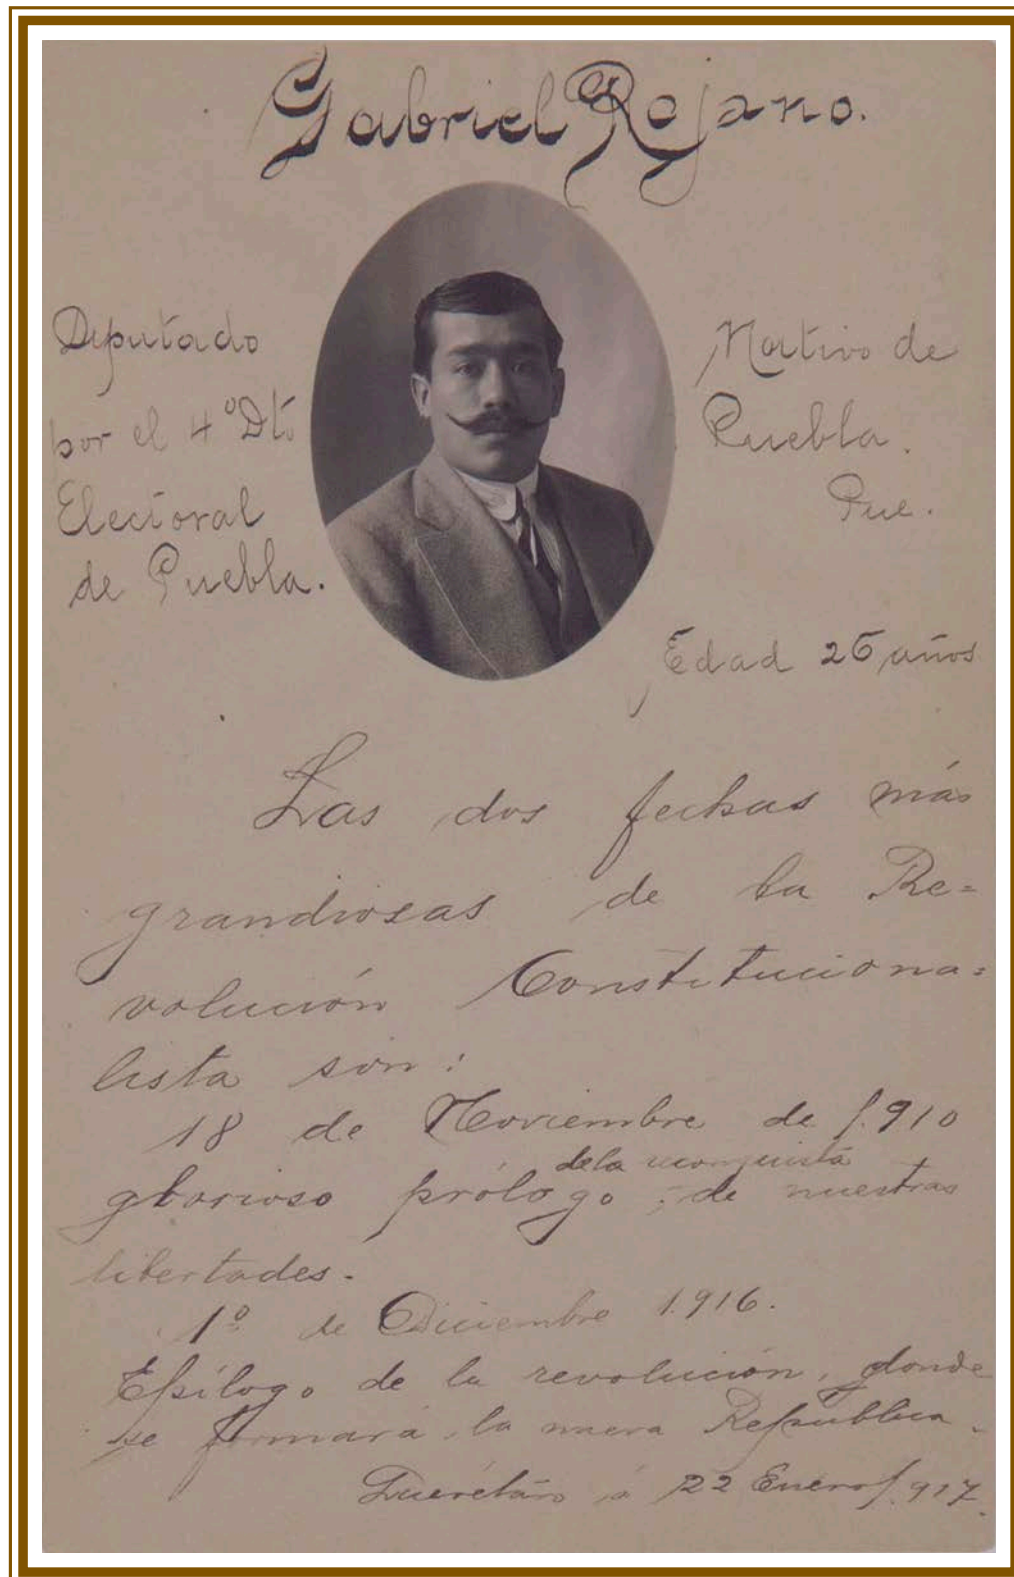 Gabriel Rojano.
Diputado
por el 4º Dto
Electoral
de Puebla.
Nativo de
Puebla.
Pue.
Edad 26 años
Las dos fechas más
grandiosas de la Re=
volución Constituciona=
lista son:
18 de Noviembre de 1.910
de la reconquista
glorioso prólogo de nuestras
libertades.
1º de Diciembre 1.916.
Epílogo de la revolución, donde
se formará la nueva República.
Querétaro a 22 Enero 1.917.